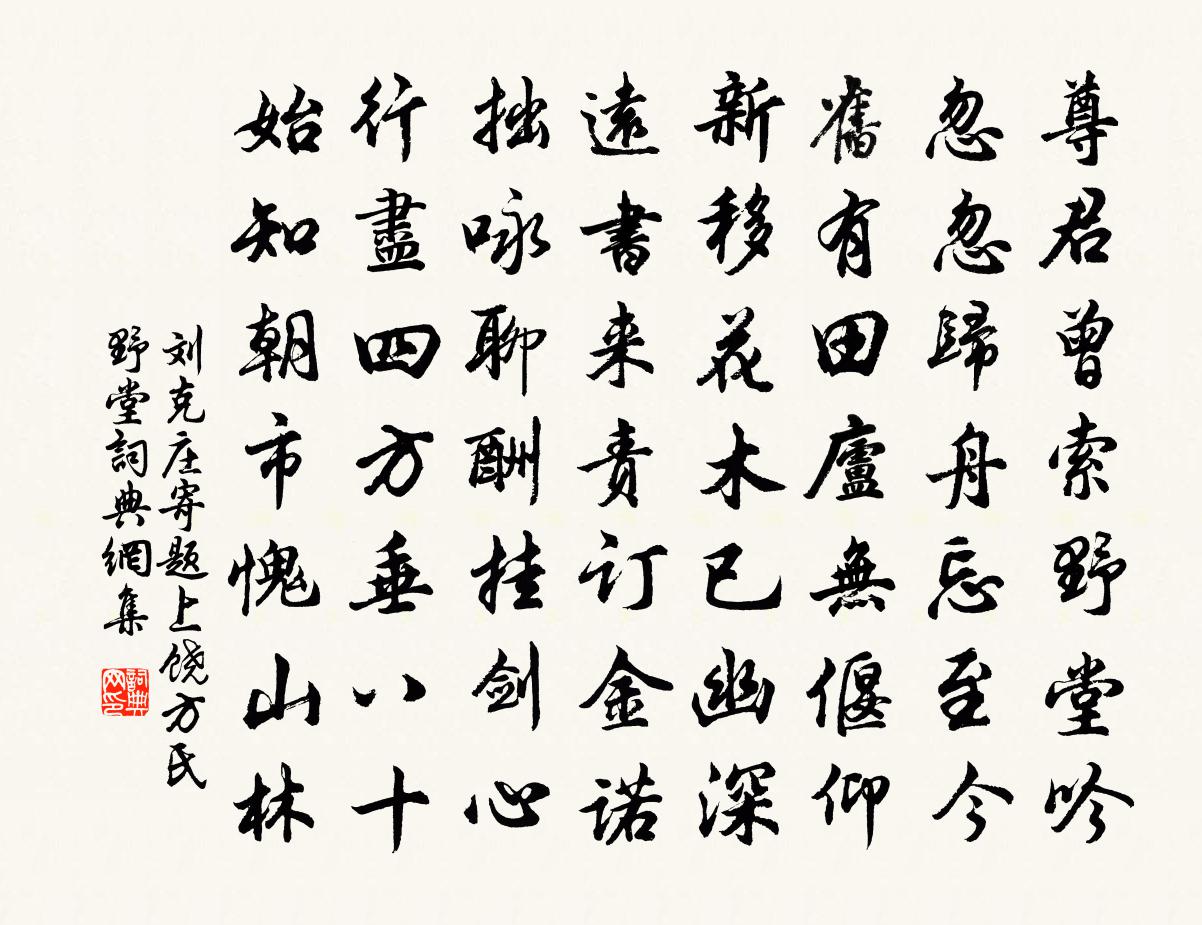 尊君曾索野堂吟
忽忽歸舟忘至今
舊有田廬無偃仰
新移花木已幽深
遠書来責訂金諾
拙咏聊酬挂剑心
行盡四方垂八十
始知朝市愧山林
刘克庄寄题上饶方氏
野堂詞典網集
詞典
网印